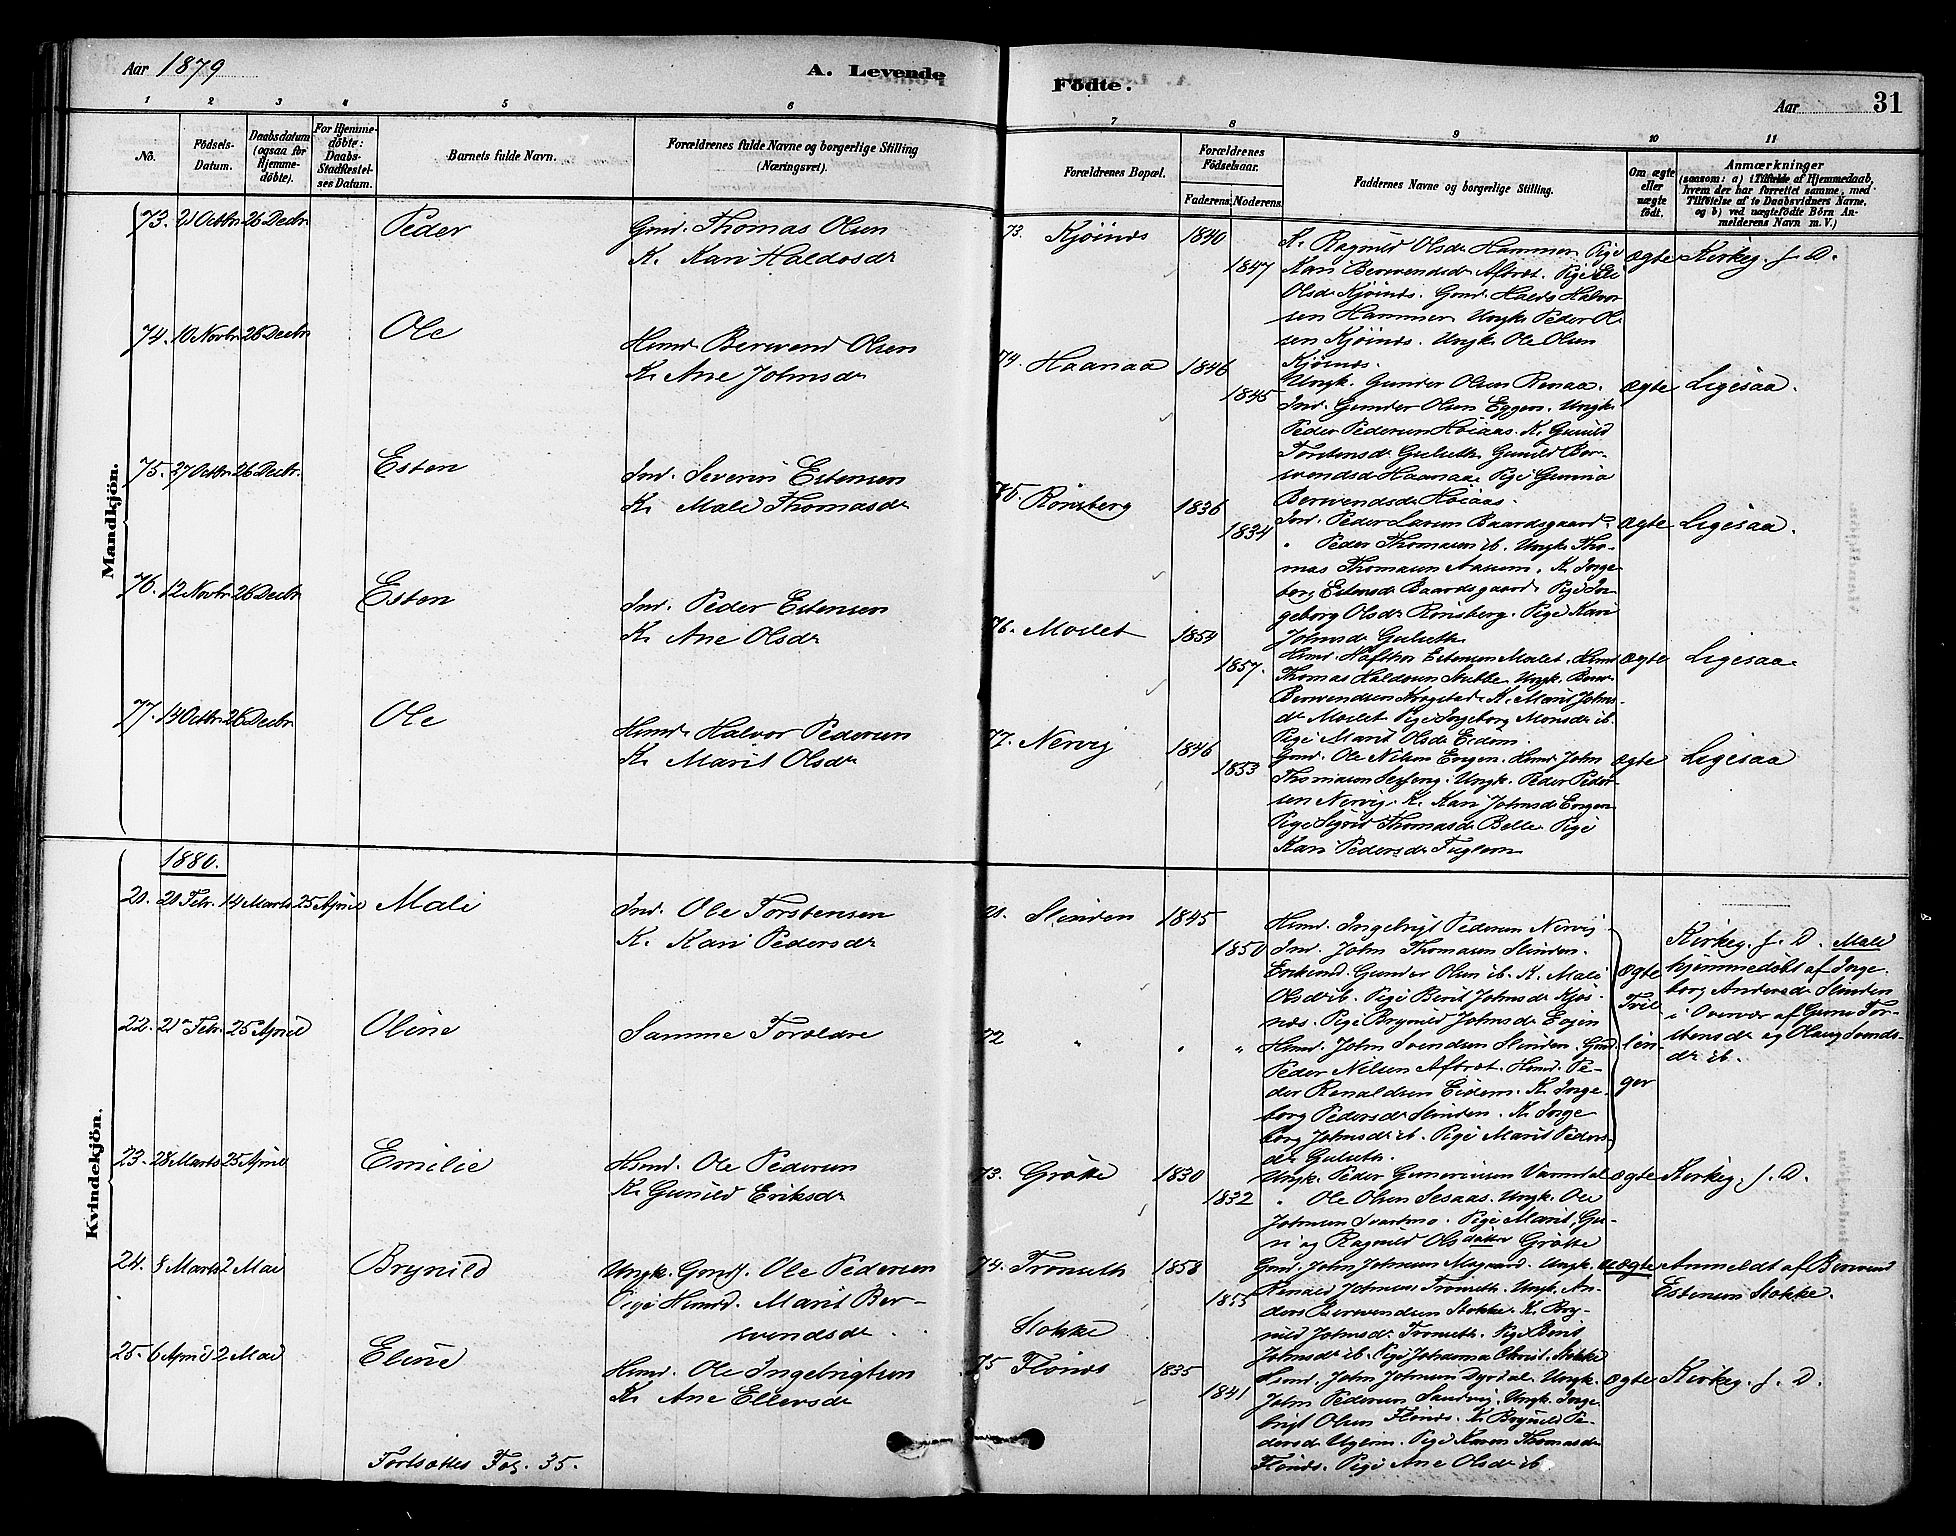 Aar 1879
A. Levende
Födte.
Aar
31
1 2 3 4 5 6 7 8 9 10 11
No.
Födsels-
Datum.
Daabsdatum
(ogsaa for
Hjemme-
döbte).
For Hjemme-
döbte:
Daabs-
Stadfæstel-
ses Datum.
Barnets fulde Navn.
Forældrenes fulde Navne og borgerlige Stilling
(Næringsvei).
Forældrenes Bopæl.
Forældrenes
Födselsaar.
Faderens. Moderens.
Faddernes Navne og borgerlige Stilling.
Om ægte
eller
uægte
födt.
Anmærkninger
(saasom: a) i Tilfælde af Hjemmedaab,
hvem der har forrettet samme, med
Tilföielse af to Daabsvidners Navne,
og b) ved uægtefödte Börn An-
melderens Navn m. V.)
Mandkjön.
73. 21 Octbr 26 Decbr Peder
Gmd. Thomas Olsen
K. Kari Haldosdr
73. Kjösnæs 1840
1847
K. Ragnild Olsdr Hammer. Pige
Kari Berwendsdr Aftret. Pige Eli
Olsdr Kjösnæs. Gmd. Haldo Halvor
sen Hammer. Ungk. Peder Ol
sen Kjösnæs. Ungk. Ole Olsen
Kjösnæs.
ægte Kirkeg. f. D.
74. 10 Novbr 26 Decbr Ole
Hmd. Berwend Olsen
K. Ane Johnsdr
74. Haanaa 1846
1845
Ungk. Gunder Olsen Renaa.
Ind. Gunder Olsen Eggen. Ungk.
Peder Pedersen Höiaas. K. Gunild
Torstensdr Gulseth. Gunild Ber-
wendsdr Haanaa. Pige Gunnia
Berwendsdr Höiaas.
ægte Ligesaa.
75. 27 Octbr 26 Decbr. Esten
Ind. Severin Estensen
K. Mali Thomasdr
75. Rönsberg 1836
1834
Ind. Peder Larsen Baardsgaard
" Peder Thomasen ib. Ungk. Tho-
mas Thomasen Aasum. K. Inge
borg Estensdr Baardsgaard. Pige In
geborg Olsdr Rönsberg. Pige Kari
Johnsdr Gulseth
ægte Ligesaa.
76. 12 Novbr 26 Decbr Esten
Ind. Peder Estensen
K. Ane Olsdr
76. Moslet 1854
1857.
Hmd. Hafthor Estensen Moslet. Hmd
Thomas Haldosen Stubbe. Ungk. Berw.
Berwendsen Krogstad. K. Marit Johns-
dr Moslet. Pige Ingeborg Monsdr ib.
Pige Marit Olsdr Eidem.
ægte Ligesaa
77. 14 Octbr. 26 Decbr Ole
Hmd. Halvor Pedersen
K. Marit Olsdr
77. Nervig 1846
1853
Gmd. Ole Nilsen Engen. Hmd. John
Thomasen Selberg. Ungk. Peder Peder-
sen Nervig. K. Kari Johnsdr Engen
Pige Sigrid Thomasdr Belle Pige
Kari Pedersdr Fuglem
ægte Ligesaa
Kvindekjön.
1880.
20. 20 Febr. 14 Marts 25 April Mali
Ind. Ole Torstensen
K. Kari Pedersdr
21. Slinden 1845
1850
Hmd. Ingebrigt Pedersen Nervig.
Ind. John Thomasen Slinden.
Enkemd. Gunder Olsen ib. K. Mali
Olsdr ib. Pige Berit Johnsdr Kjös-
næs. Pige Brynild Johnsdr Evjen
ægte
Tvil
lin-
ger
Kirkeg. f. D. Mali
hjemmedöbt af Inge
borg Andersdr Slinden
i Overvær af Guru Tor-
stensdr og Olaug Svends-
dr ib.
22. 21de Febr. 25 April Oline
Samme Forældre
22 " " "
Hmd. John Svendsen Slinden. Gmd.
Peder Nilsen Aftret. Hmd. Pe-
der Renaldsen Eidem. K. Inge-
borg Pedersdr Slinden. K. Inge
borg Johnsdr ib. Pige Marit Peders-
dr Gulseth.
23. 28 Marts 25 April Emilie
Hmd. Ole Pedersen
K. Gunild Eriksdr
73. Grötte 1830
1832
Ungk. Peder Gunerinsen Varmdal
" Ole Olsen Sesaas. Ungk. Ole
Johnsen Svartmo. Pige Marit, Gu-
ri og Ragnild Olsdötre Grötte
ægte Kirkeg. f. D.
24. 8 Marts 2 Mai Brynild
Ungk. Gmds. Ole Pedersen
Pige Hmd. Marit Ber-
wendsdr
74. Tronseth 1858
Stokke
1855
Gmd. John Johnsen Mogaard. Ungk.
Renald Johnsen Tronseth. Ungk. An-
ders Berwendsen Stokke. K. Bry-
nild Johnsdr Tronseth. Pige Berit
Johnsdr ib. Pige Johanna Christ. Stokke
uægte Anmeldt af Berwend
Estensen Stokke.
25. 6 April 2 Mai Eline
Hmd. Ole Ingebrigtsen
K. Ane Ellersdr
75 Flönæs 1835
1841
Hmd. John Johnsen Dyrdal. Ungk.
John Pedersen Sandvig. Ungk. Inge
brigt Olsen Flönæs. K. Brynild Pe-
dersdr Uglem. Pige Karen Thomasdr
Flönæs. Pige Ane Olsdr ib
ægte Kirkeg. f. D.
Fortsættes Fol. 35.